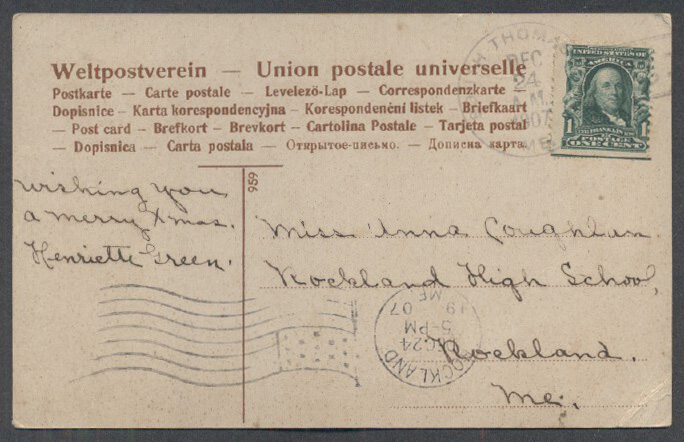 Weltpostverein — Union postale universelle
Postkarte — Carte postale — Levelező-Lap — Correspondenzkarte
Dopisnice - Karta korespondencyjna - Korespondenční listek - Briefkaart
— Post card - Brefkort - Brevkort - Cartolina Postale - Tarjeta postal
— Dopisnica — Carta postala — Открытое-письмо. — Дописна карта.
TH THOMAS
DEC
24
1907
ME
UNITED STATES OF
AMERICA
FRANKLIN
1 1
POSTAGE
ONE CENT
959
wishing you
a merry Xmas.
Henriette Green.
Miss Anna Coughlan.
Rockland High School,
Rockland.
Me.
ROCKLAND
DEC 24
5-PM
19 07
ME